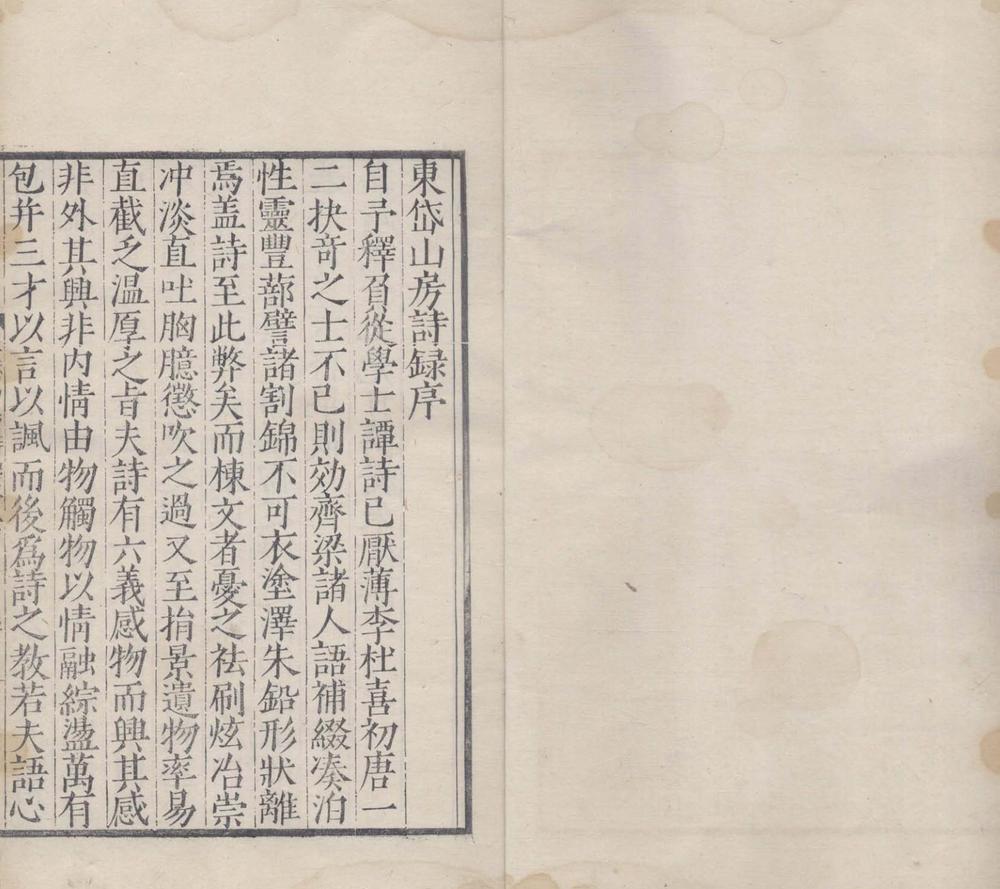 東岱山房詩録序
自予釋負從學士譚詩已厭薄李杜喜初唐一
二抉奇之士不已則効齊梁諸人語補綴凑泊
性靈豐蔀譬諸割錦不可衣塗澤朱鉛形狀離
焉盖詩至此弊矣而棟文者憂之祛刷炫冶崇
冲淡直吐胸臆懲吹之過又至捐景遺物率易
直截乏温厚之旨夫詩有六義感物而興其感
非外其興非内情由物觸物以情融綜盪萬有
包并三才以言以諷而後爲詩之教若夫語心